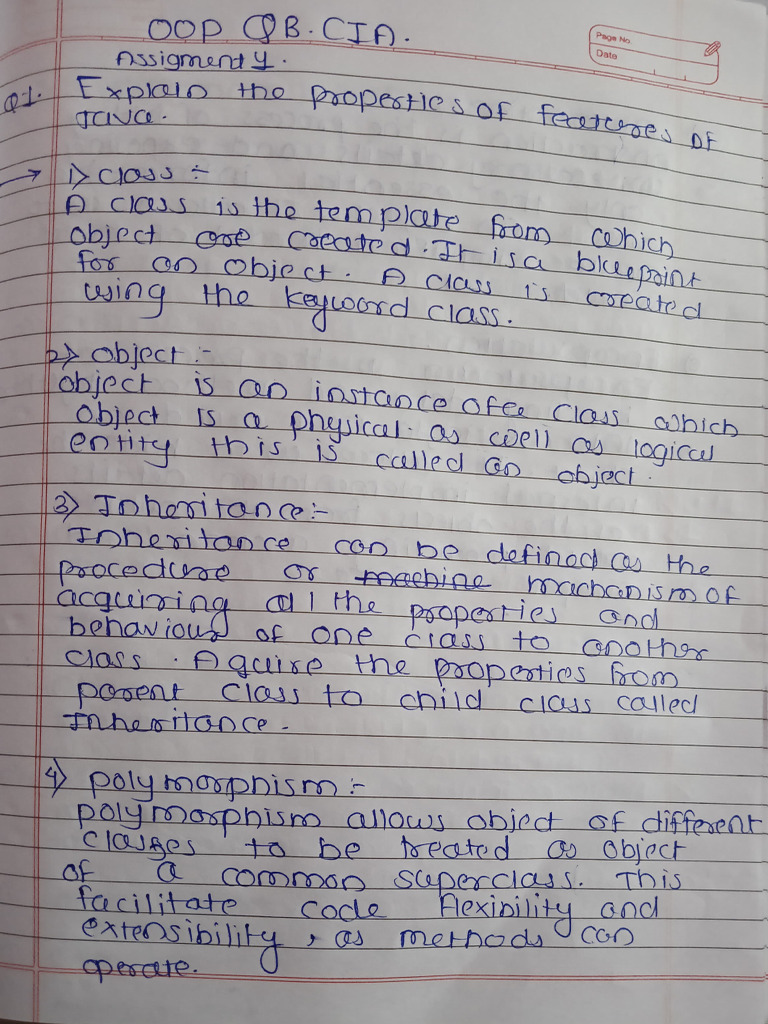 OOP QB. CIA.
Page No.
Date
Assigment 1.
Q1. Explain the properties of features of
Java.
→ 1) class :-
A class is the template from which
object are created. It is a bluepoint
for an object. A class is created
using the keyword class.
2) object :-
object is an instance of a class which
object is a physical as well as logical
entity this is called an object.
3) Inheritance :-
Inheritance can be defined as the
procedure or machine machanism of
acquiring all the properties and
behaviour of one class to another
class. Aquire the properties from
parent class to child class called
Inheritance.
4) polymorphism :-
polymorphism allows object of different
classes to be treated as object
of a common superclass. This
facilitate code flexibility and
extensibility, as methods can
operate.